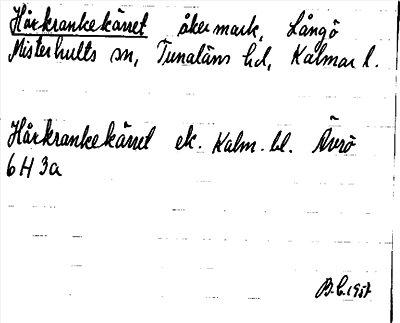 Hårkrankekärret åkermark, Långö
Misterhults sn, Tunaläns hd, Kalmar l.
Hårkrankekärret ek. Kalm. bl. Ävrö
6H 3a
B.C. 1957